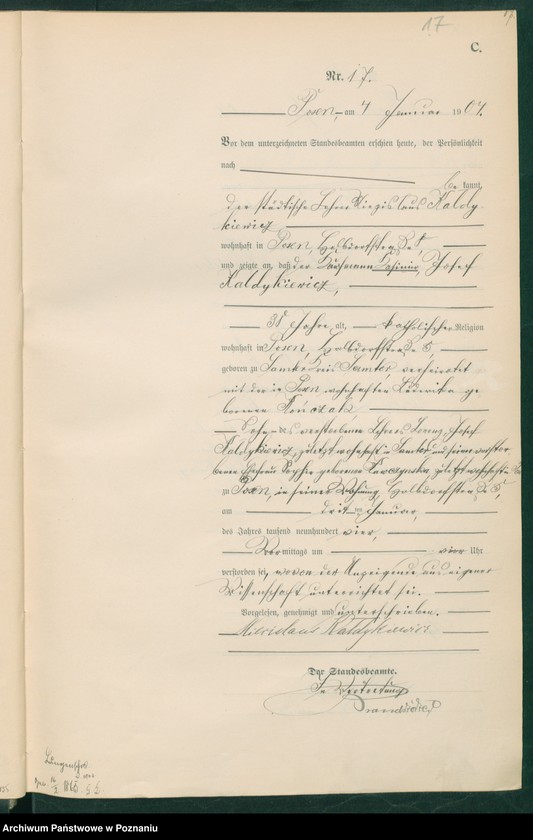 17
17
C.
Nr. 17.
Posen, am 4 Januar 1904.
Vor dem unterzeichneten Standesbeamten erschien heute, der Persönlichkeit
nach
be kannt,
der städtische Lehrer Kaldy-
kiewicz
wohnhaft in Posen,
und zeigte an, daß der Kaufmann Casimir Josef
Kaldykiewicz,
Jahre alt, katholischer Religion
wohnhaft in Posen,
geboren zu Samter Kreis Samter, verheiratet
mit der in Posen wohnhaften Ludwika ge
borenen
Sohn des verstorbenen Lehrers Lorenz Josef
Kaldykiewicz, zuletzt wohnhaft in Samter und seiner verstor
benen Ehefrau Sophie geborene zuletzt wohnhaft
zu Posen, in seiner Wohnung,
am dritten Januar,
des Jahres tausend neunhundert vier,
Vormittags um vier Uhr
verstorben sei, wovon der Anzeigende aus eigener
Wissenschaft unterrichtet sei.
Vorgelesen, genehmigt und unterschrieben.
Kaldykiewicz
Der Standesbeamte.
In Vertretung
Archiwum Państwowe w Poznaniu